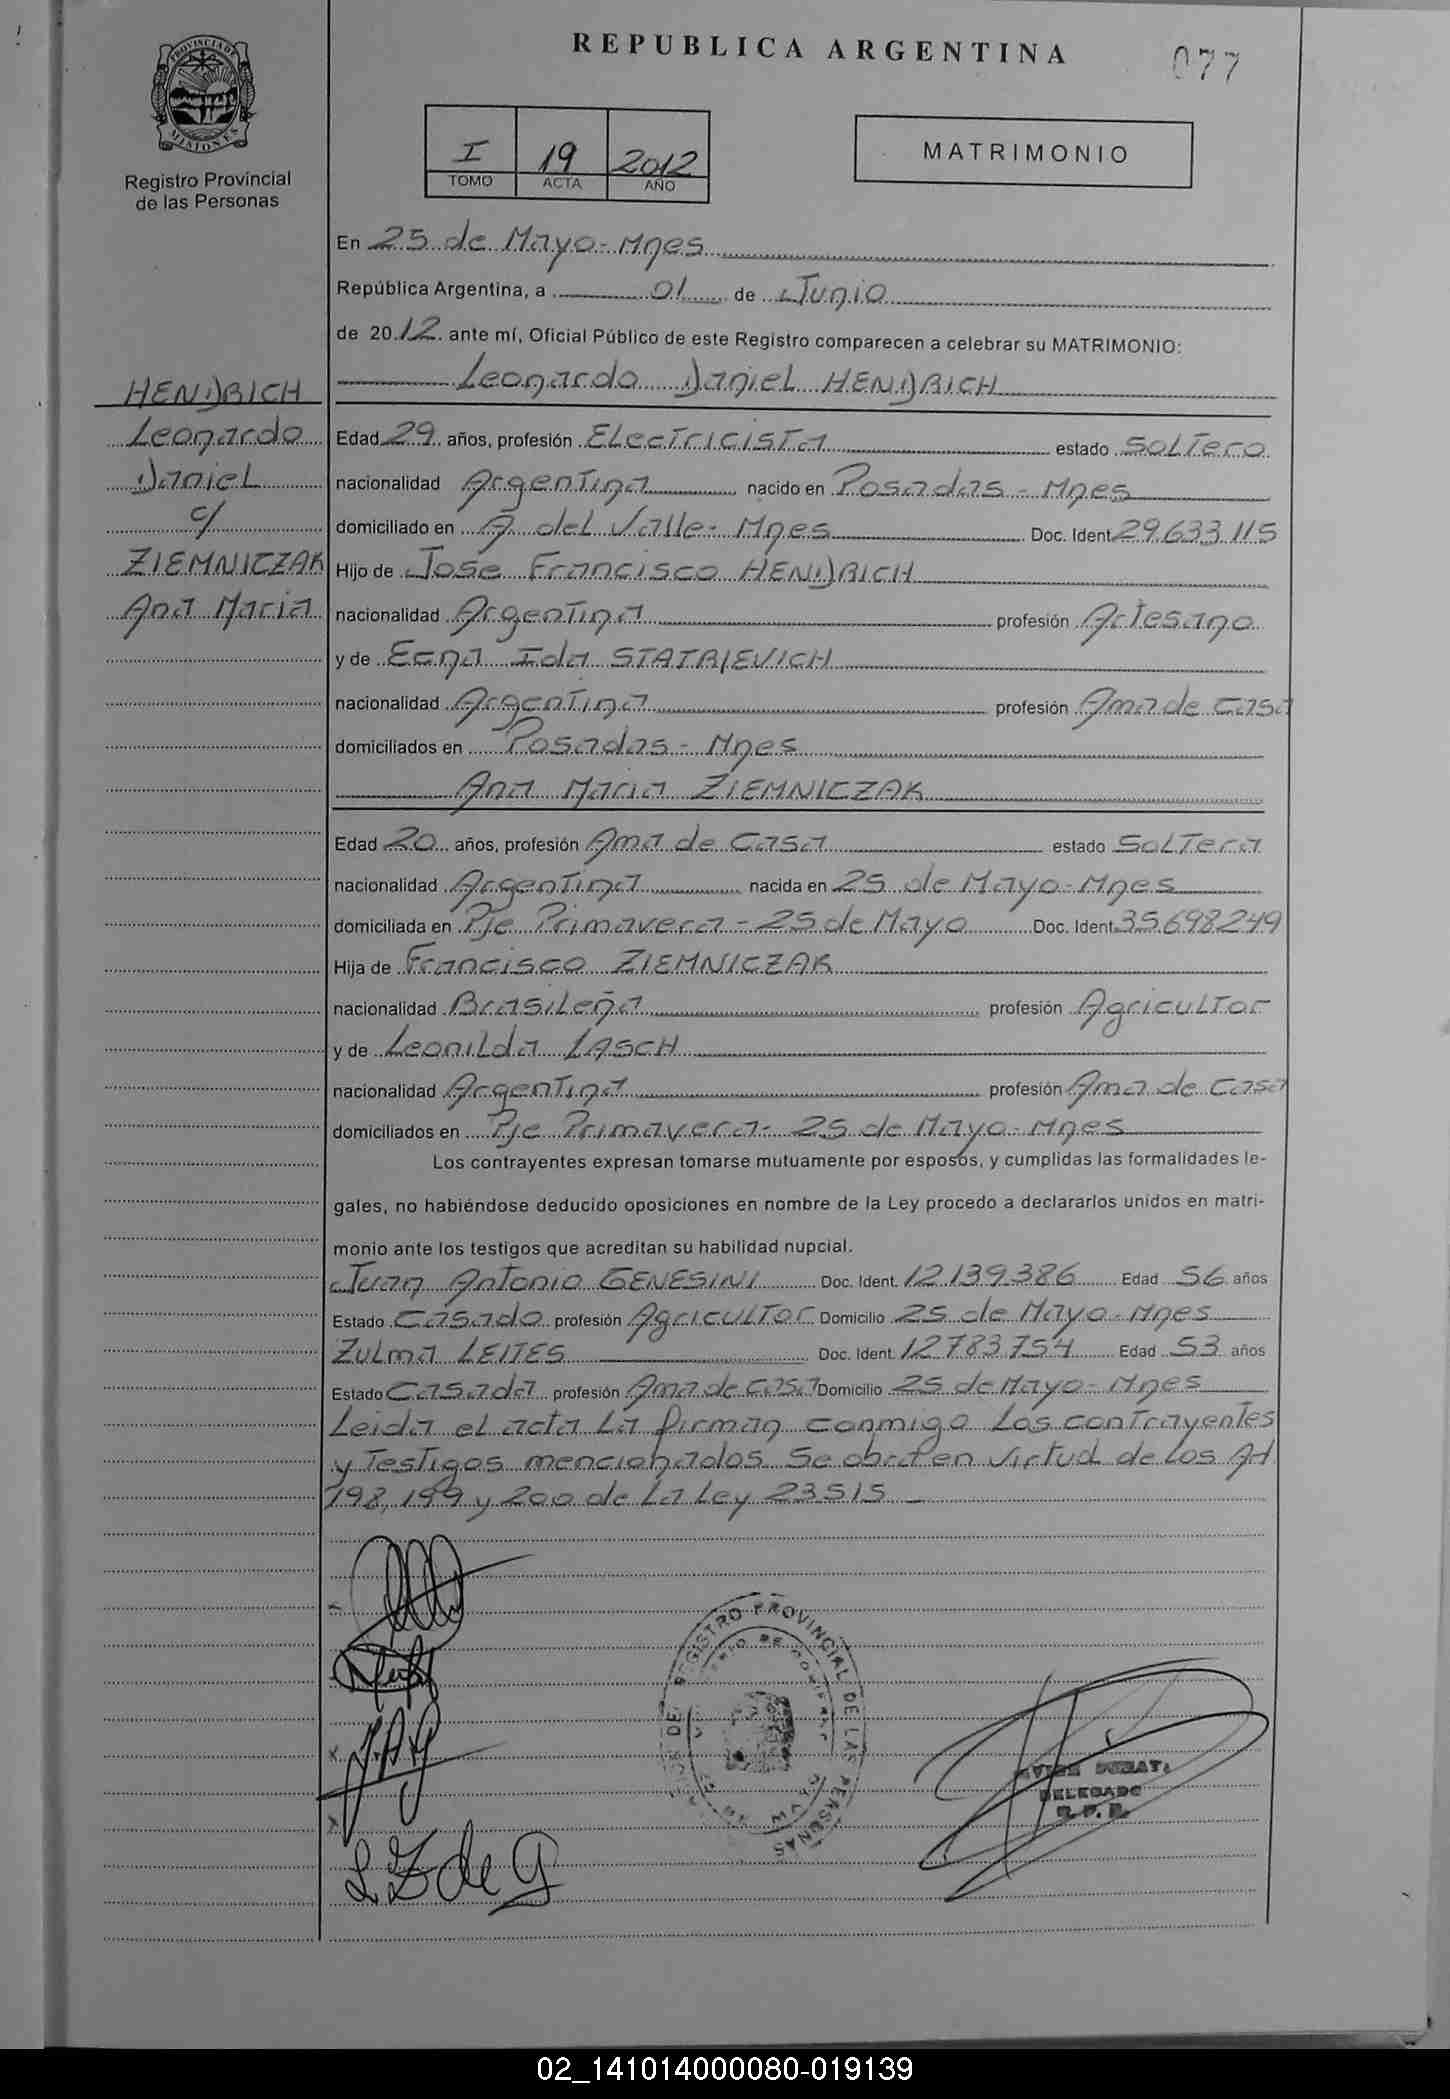 REPUBLICA ARGENTINA
077
PROVINCIA DE MISIONES
Registro Provincial
de las Personas
I 19 2012
TOMO ACTA AÑO
MATRIMONIO
En 25 de Mayo - Mnes
República Argentina, a 01 de Junio
de 2012 ante mí, Oficial Público de este Registro comparecen a celebrar su MATRIMONIO:
Leonardo Daniel HENDRICH
HENDRICH
Leonardo
Daniel
c/
ZIEMNICZAK
Ana Maria
Edad 29 años, profesión Electricista estado Soltero
nacionalidad Argentina nacido en Posadas - Mnes
domiciliado en A. del Valle - Mnes Doc. Ident. 29.633.115
Hijo de Jose Francisco HENDRICH
nacionalidad Argentina profesión Artesano
y de Ida
nacionalidad Argentina profesión Ama de Casa
domiciliados en Posadas - Mnes
Ana Maria ZIEMNICZAK
Edad 20 años, profesión Ama de Casa estado Soltera
nacionalidad Argentina nacida en 25 de Mayo - Mnes
domiciliada en Pje Primavera - 25 de Mayo Doc. Ident. 35.698.249
Hija de Francisco ZIEMNICZAK
nacionalidad Brasileña profesión Agricultor
y de Leonilda LASCH
nacionalidad Argentina profesión Ama de Casa
domiciliados en Pje Primavera - 25 de Mayo - Mnes
Los contrayentes expresan tomarse mutuamente por esposos, y cumplidas las formalidades le-
gales, no habiéndose deducido oposiciones en nombre de la Ley procedo a declararlos unidos en matri-
monio ante los testigos que acreditan su habilidad nupcial.
Juan Antonio GENESINI Doc. Ident. 12.139.386 Edad 56 años
Estado Casado profesión Agricultor Domicilio 25 de Mayo - Mnes
Zulma LEITES Doc. Ident. 12.783.754 Edad 53 años
Estado Casada profesión Ama de Casa Domicilio 25 de Mayo - Mnes
Leida el acta La firman conmigo Los contrayentes
y Testigos mencionados. Se obró en virtud de Los Art
198, 199 y 200 de La Ley 23515
REGISTRO PROVINCIAL DE LAS PERSONAS
DELEGADO
R. P. P.
02_141014000080-019139